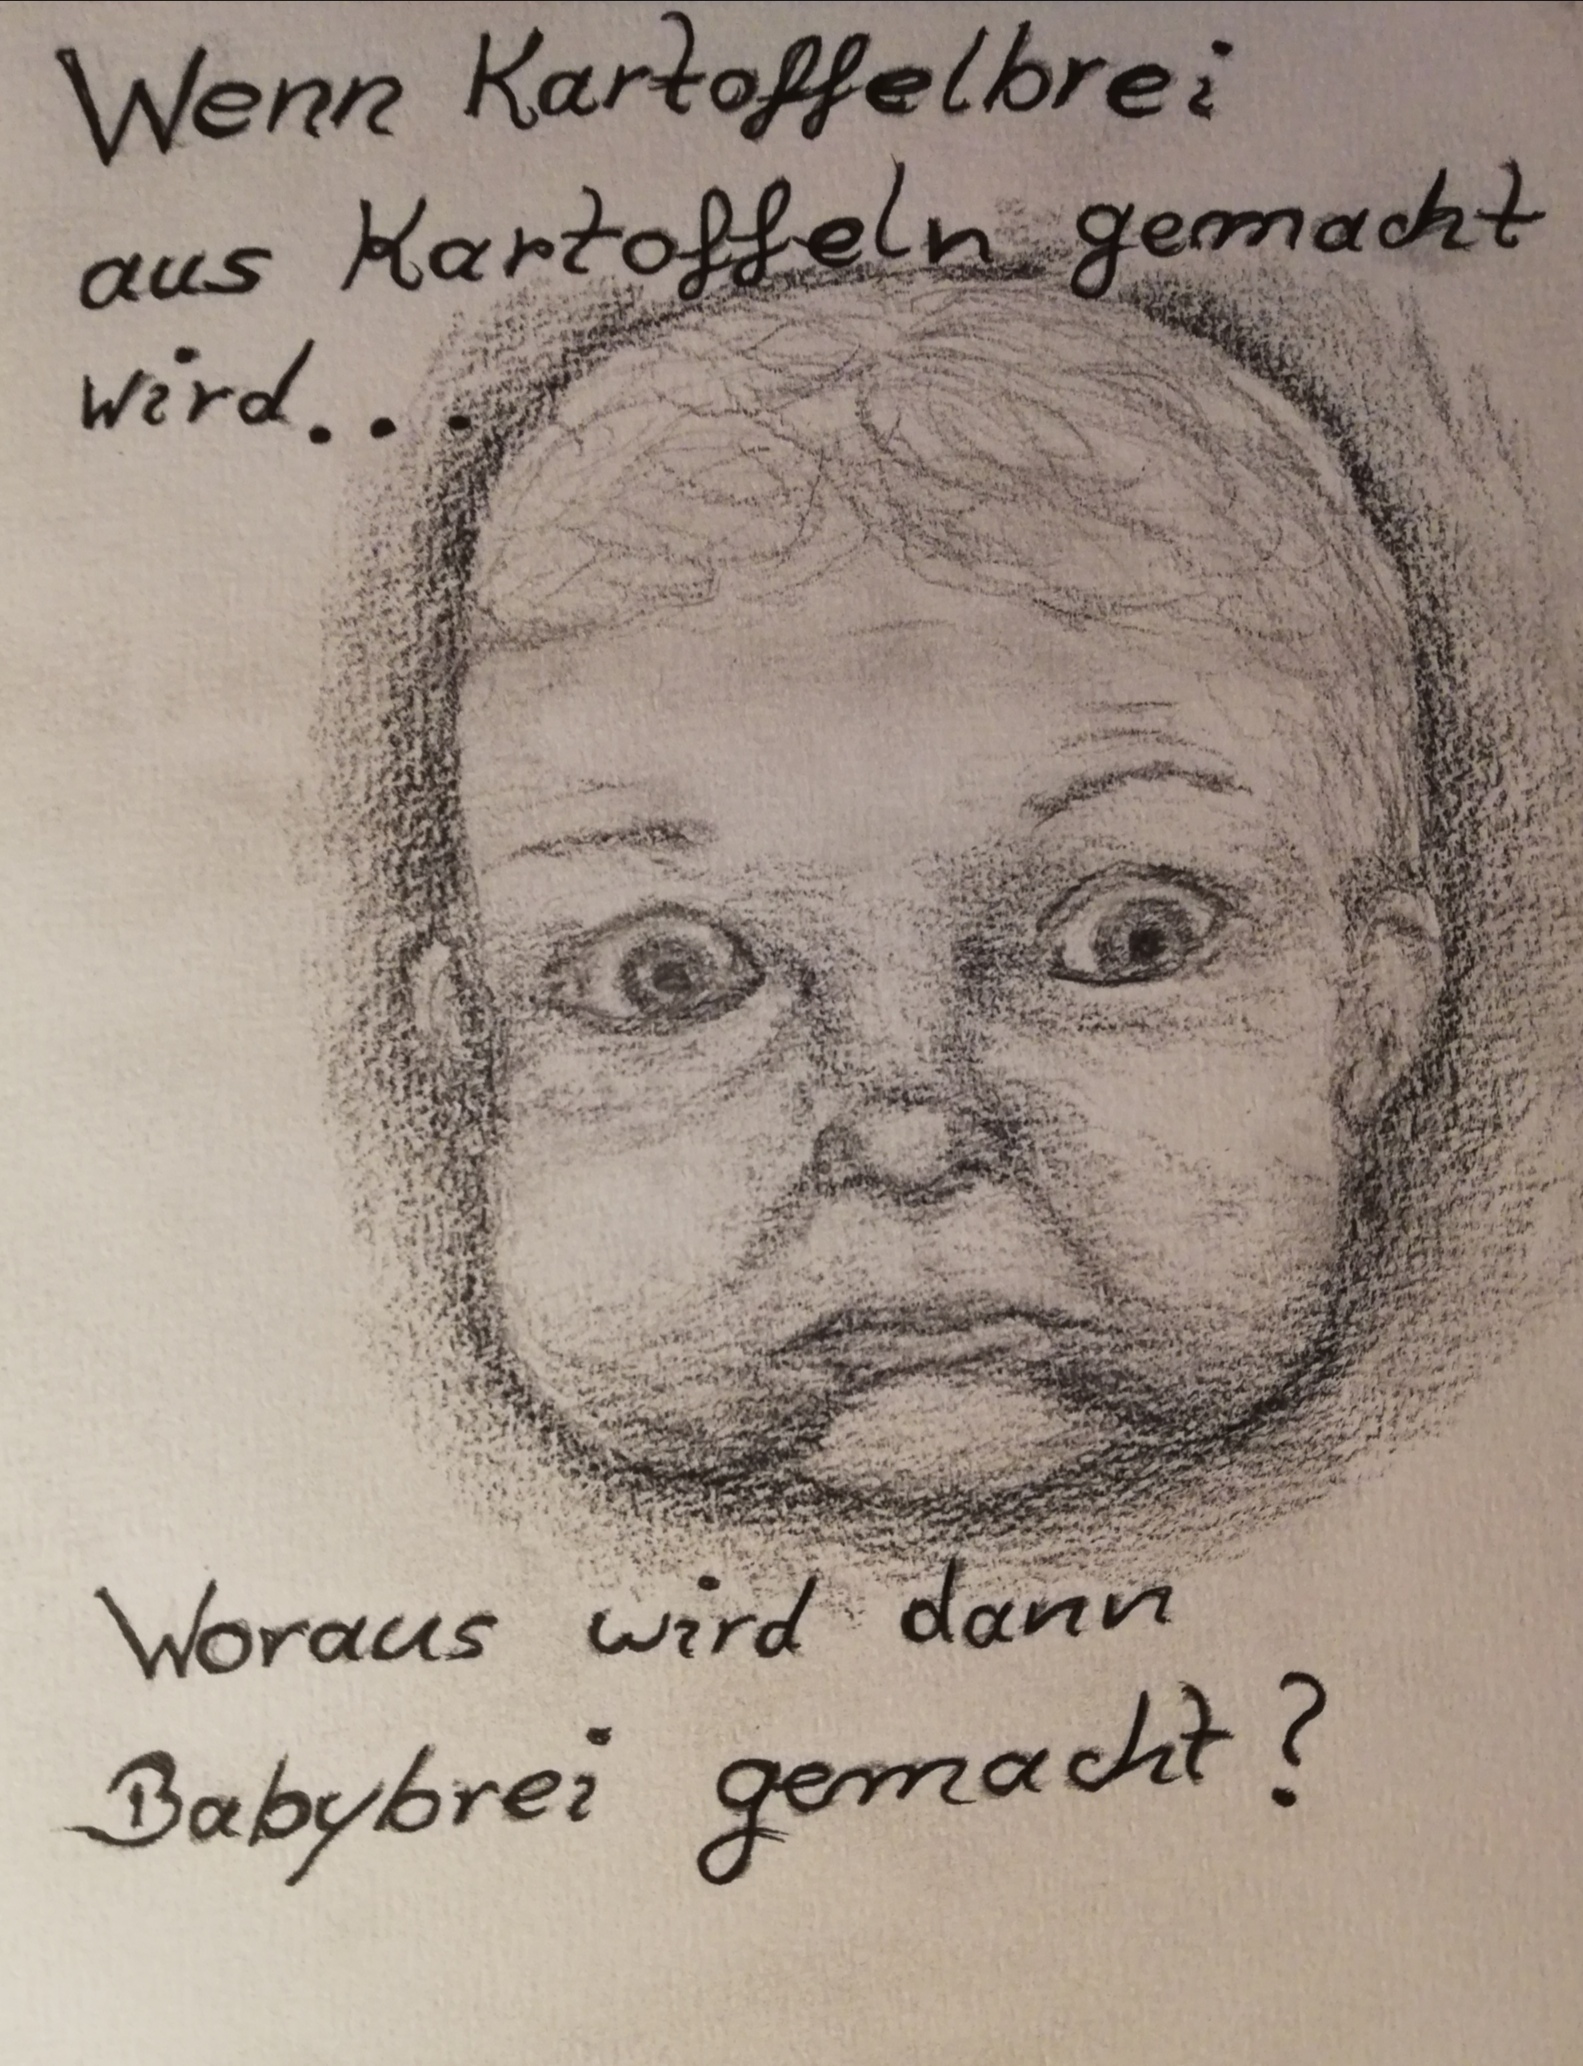 Wenn Kartoffelbrei
aus Kartoffeln gemacht
wird...
Woraus wird dann
Babybrei gemacht?